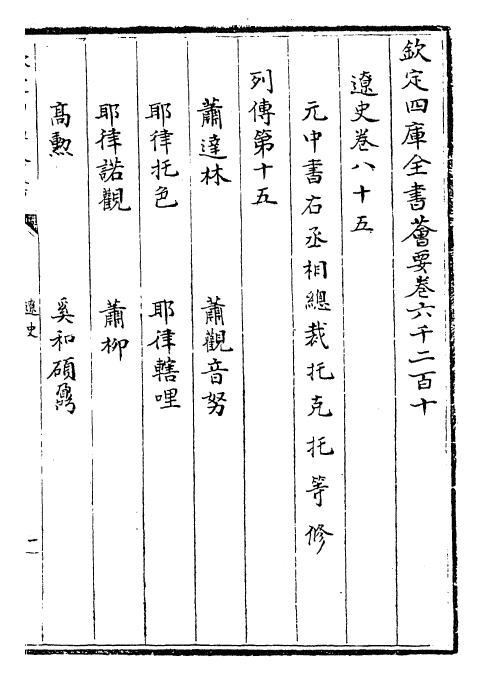 欽定四庫全書薈要卷六千二百十
遼史卷八十五
元中書右丞相總裁托克托等修
列傳第十五
蕭達林　蕭觀音努
耶律托色　耶律轄哩
耶律諾觀　蕭柳
高勲　奚和碩鼐
遼史
一